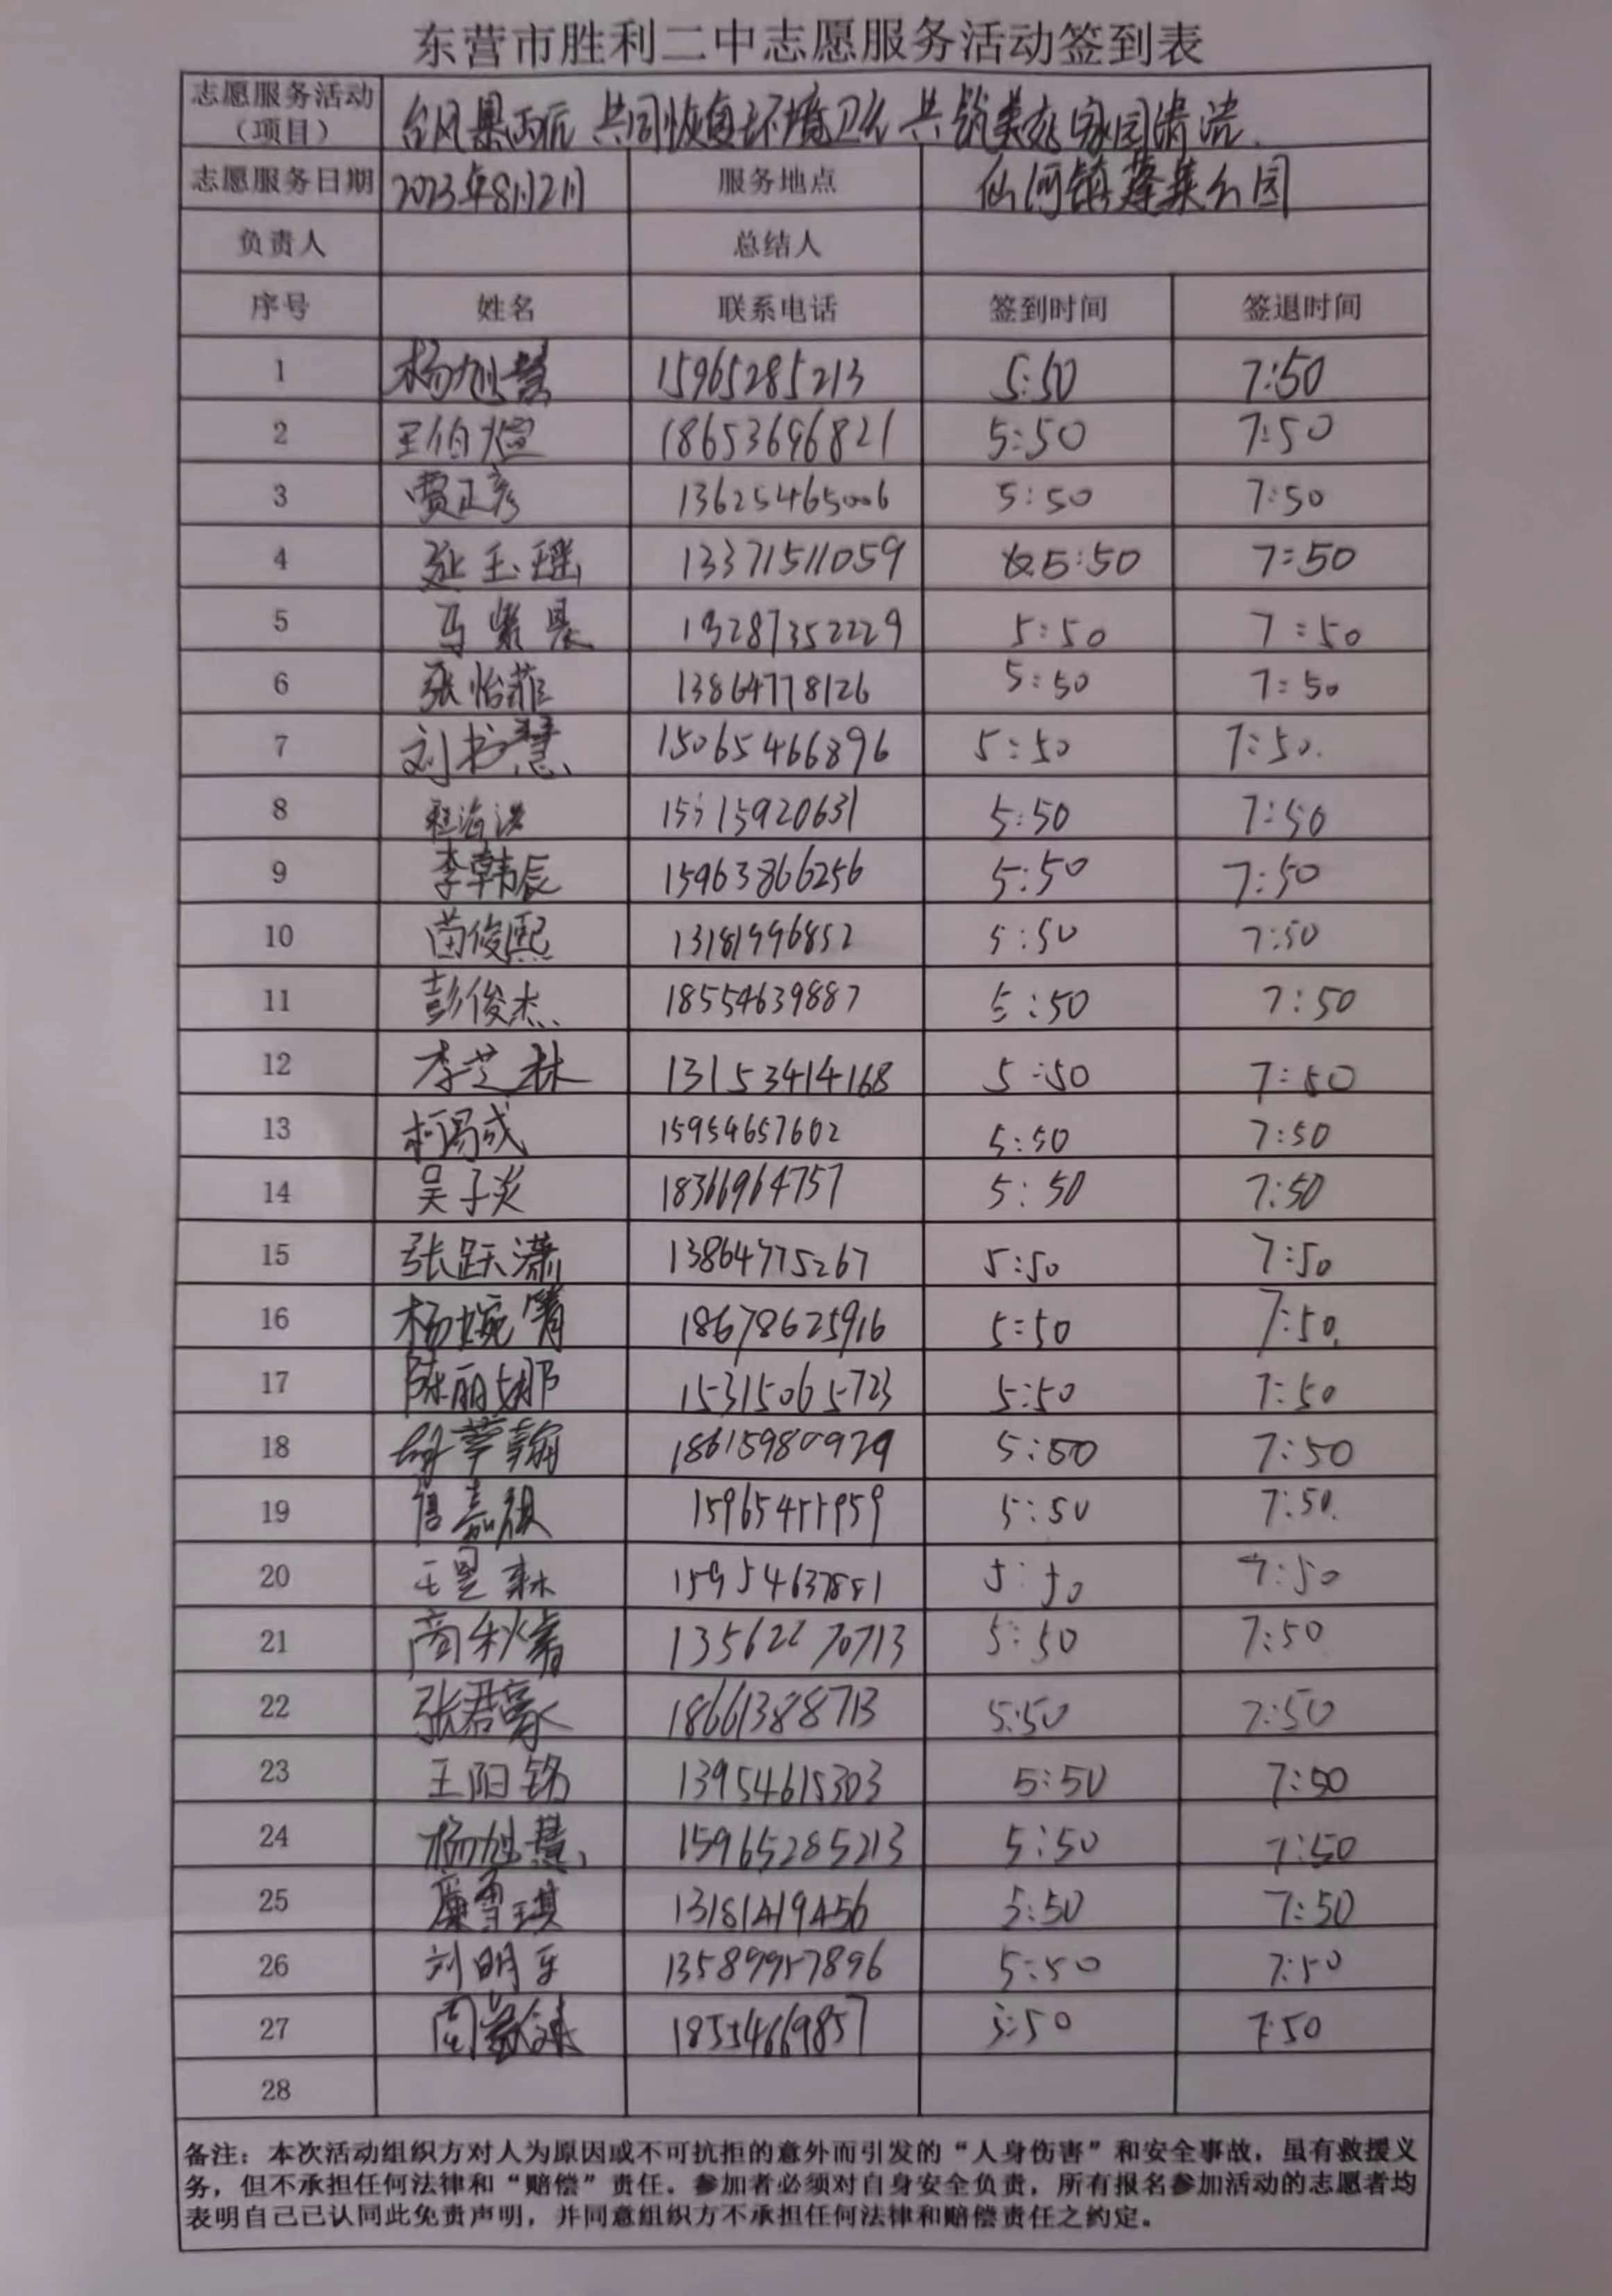 东营市胜利二中志愿服务活动签到表
志愿服务活动（项目） 台风暴雨后 共同恢复环境卫生 共筑美好家园清洁.
志愿服务日期 2023年8月2日 服务地点 仙河镇蓬莱公园
负责人 总结人
序号 姓名 联系电话 签到时间 签退时间
1 杨旭慧 15965285213 5:50 7:50
2 王伯煊 18653696821 5:50 7:50
3 贾正彦 13625465006 5:50 7:50
4 张玉瑶 13371511059 5:50 7:50
5 马紫晨 13287352229 5:50 7:50
6 张怡菲 13864778126 5:50 7:50
7 刘书慧 15065466896 5:50 7:50.
8 程海洪 5:50 7:50
9 李韩辰 15963866256 5:50 7:50
10 苗俊熙 13181996852 5:50 7:50
11 彭俊杰 18554639887 5:50 7:50
12 李芝林 13153414168 5:50 7:50
13 柯昜成 15954657602 5:50 7:50
14 吴子炎 18366964757 5:50 7:50
15 张跃潇 13864775267 5:50 7:50
16 杨婉箐 18678625916 5:50 7:50.
17 陈丽娜 15315065723 5:50 7:50
18 18615980929 5:50 7:50
19 信嘉 5:50 7:50.
20 王昱霖 15954637881 5:50 7:50
21 商秋睿 13562270713 5:50 7:50
22 张君豪 18661388713 5:50 7:50
23 王阳铭 13954615303 5:50 7:50
24 杨旭慧 15965285213 5:50 7:50
25 廉雪琪 13181419456 5:50 7:50
26 刘明 13589957896 5:50 7:50
27 周 18554669857 5:50 7:50
28
备注：本次活动组织方对人为原因或不可抗拒的意外而引发的“人身伤害”和安全事故，虽有救援义
务，但不承担任何法律和“赔偿”责任。参加者必须对自身安全负责，所有报名参加活动的志愿者均
表明自己已认同此免责声明，并同意组织方不承担任何法律和赔偿责任之约定。